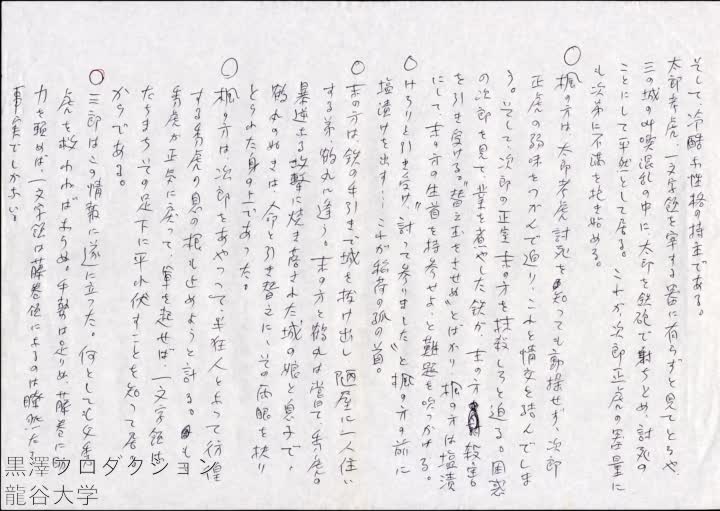 そして、冷酷な性格の持主である
太郎孝虎、一文字領を宰する器に有らずと見てとるや、
三の城の叫喚混乱の中に、太郎を鉄砲で射ちとめ、討死の
ことにして平然として居る。これが次郎正虎の器量に
も次第に不満を抱き始める。
○楓の方は、太郎孝虎討死を知っても動揺せず、次郎
正虎の弱味をつかんで迫り、これと情交を結んでしま
う。そして、次郎の正室 末の方を抹殺しろと迫る。困惑
の次郎を見て、業を煮やした鉄が、末の方 殺害
を引き受ける。
にして、末の方の生首を持参せよ、と難題を吹っかける。
○けろりと引き受け、討って参りました、と楓の方の前に
塩漬けを出す…これが稲荷の狐の首。
○末の方は、鉄の手引きで城を抜け出し 陋屋に一人住い
する弟 鶴丸に逢う。末の方と鶴丸は 嘗て、秀虎の
暴逆な攻撃に焼き落された城の娘と息子で、
鶴丸の如きは、命と引き替えに、その両眼を抉り
とられた身の上であった。
○楓の方は、次郎をあやつって、半狂人となって彷徨
する秀虎の息の根も止めようと計る。もし
秀虎が正気に戻って、軍を起せば、一文字領は
たちまちその足下に平れ伏すことを知って居る
からである。
○三郎はこの情報に遂に立った。何としても父秀
虎を救わねばならぬ。手勢は足りぬ、藤巻に助
力を頼めば、一文字領は藤巻によるのは
事実でしかない。
黒澤プロダクション
龍谷大学